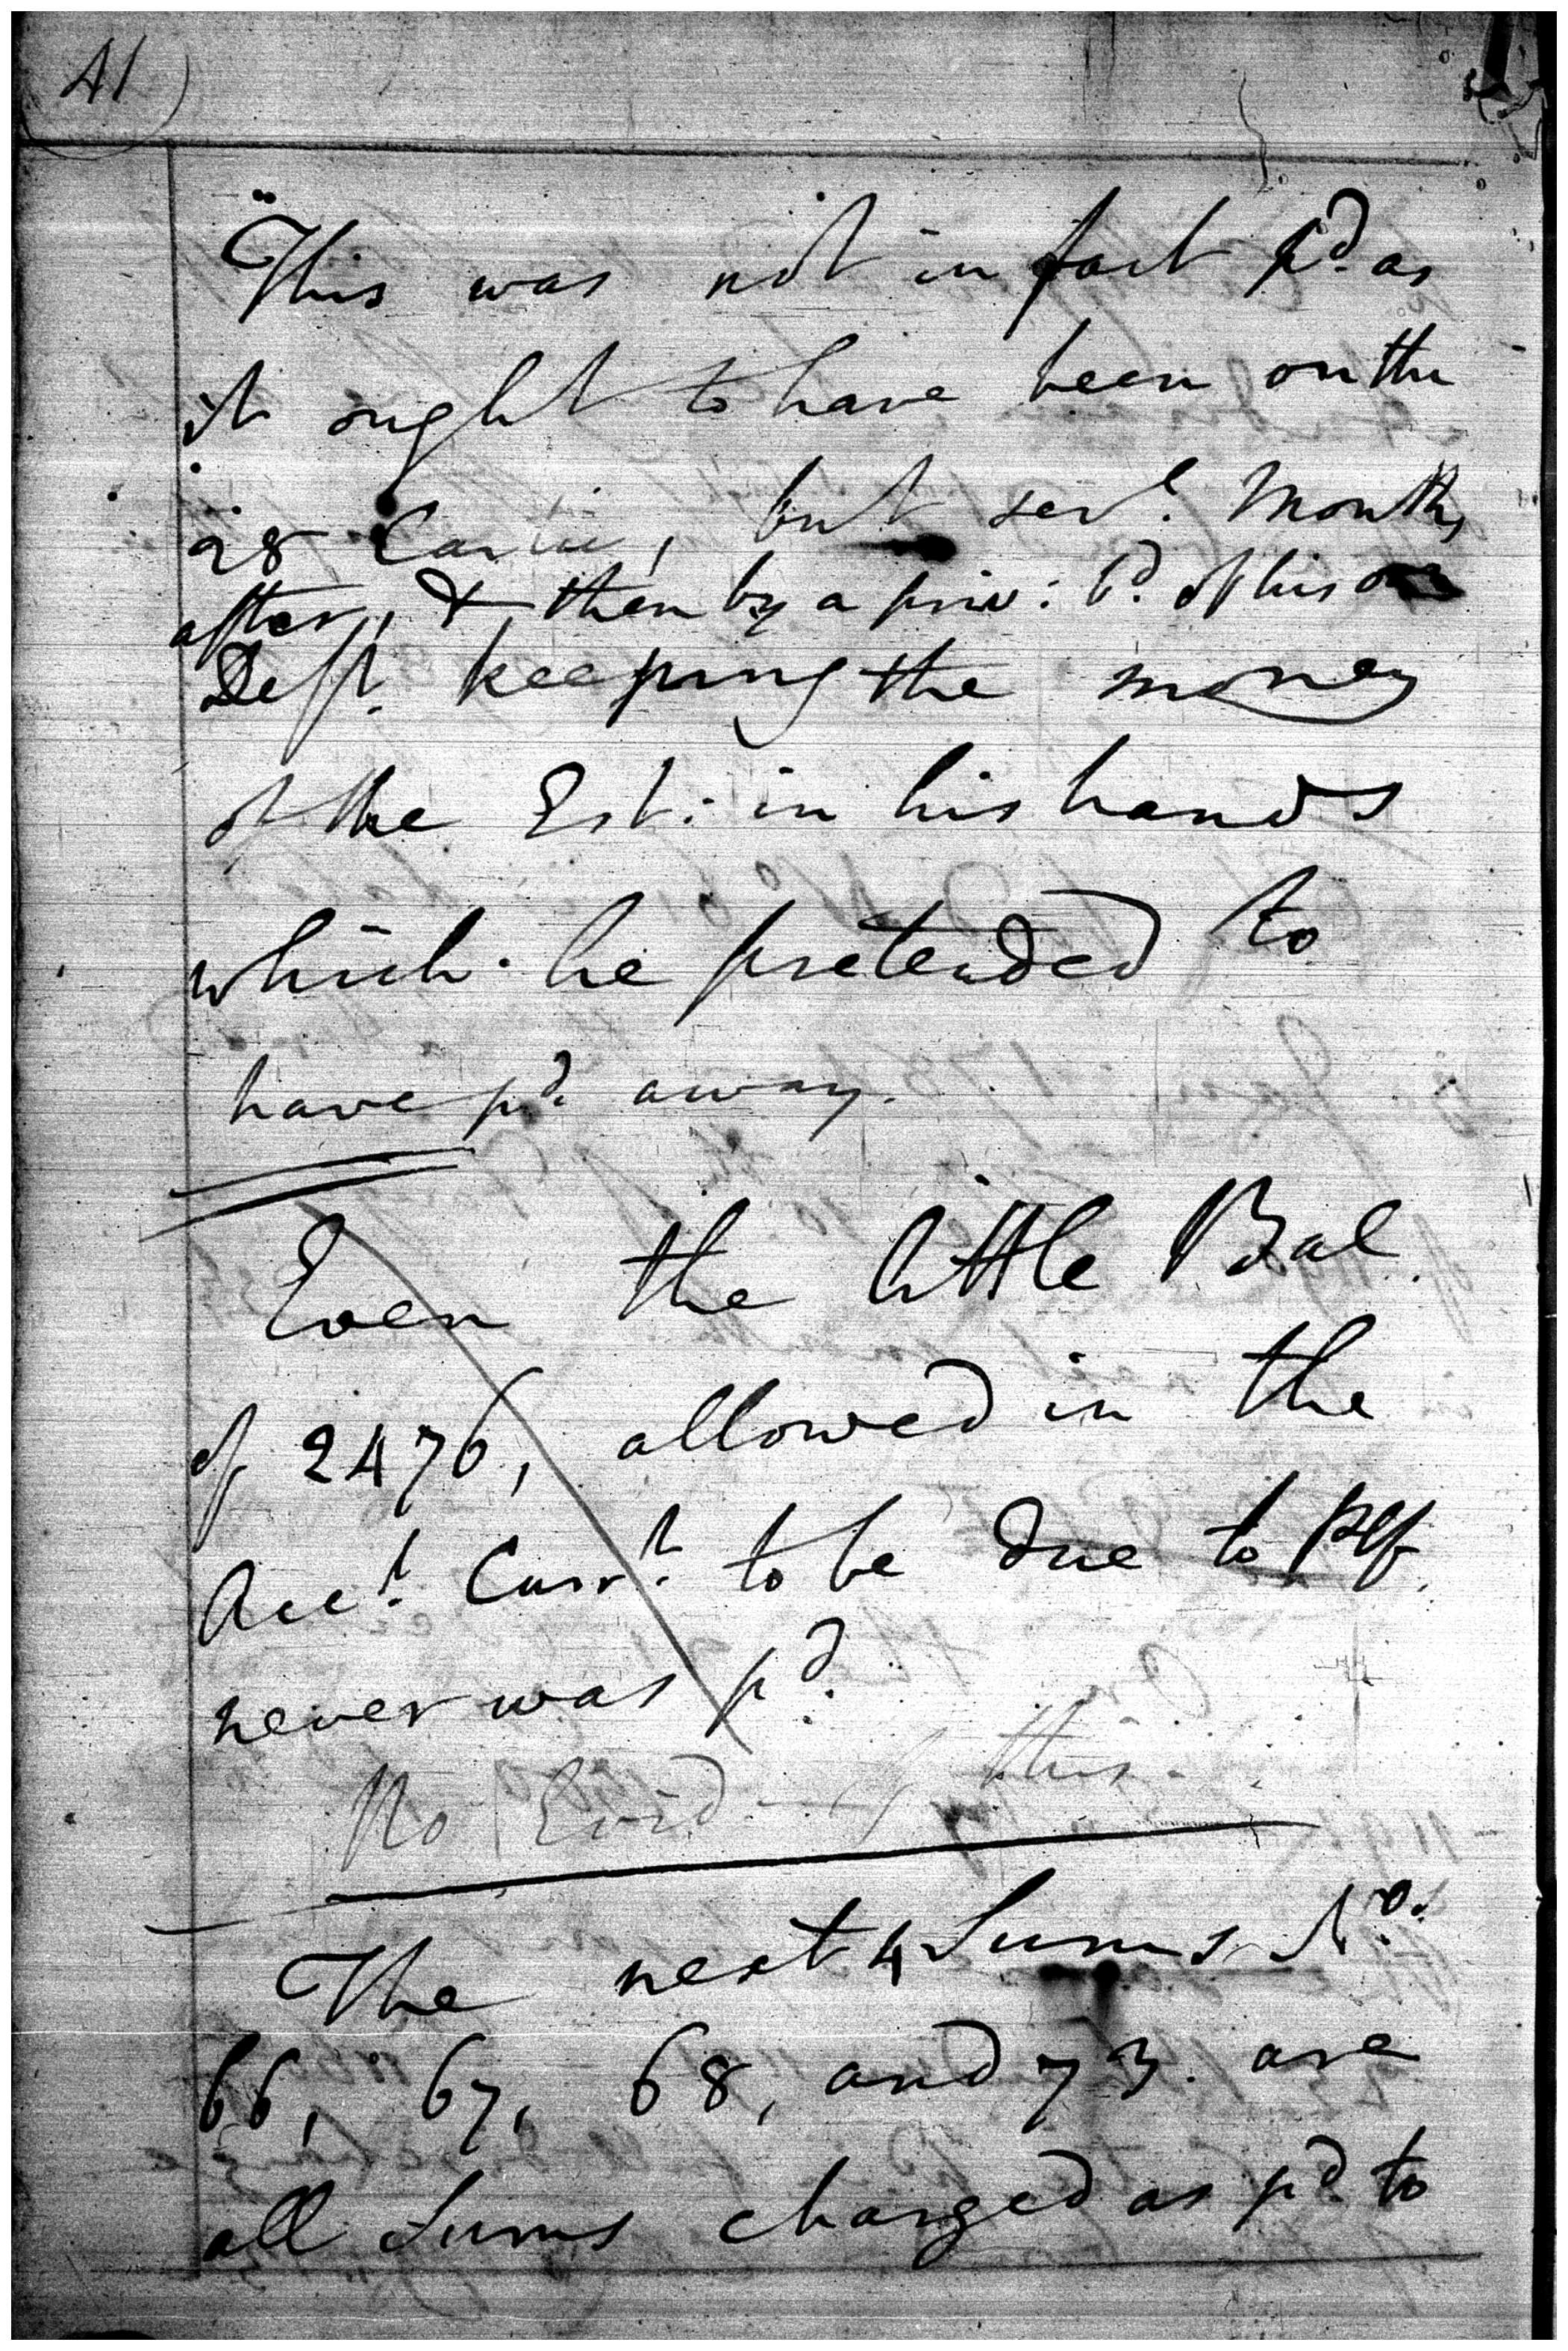 41
This was not in fact pd. as
it ought to have been on the
28 , but sevl. Months
after, & then by a priv: Bd. of his
Deft. keeping the money
of the Est: in his hands
which he pretended to
have pd. away.
Even the little Bal.
of 2476, allowed in the
Acct. Currt. to be due to Plf.
never was pd.
No Evid of this.
The next 4 Sums No.
66, 67, 68, and 73. are
all Sums charged as pd. to